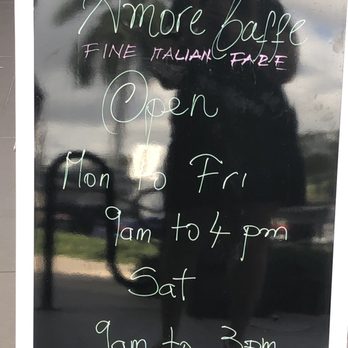 Amore Caffe
FINE ITALIAN FARE
Open
Mon to Fri
9am to 4 pm
Sat
9am to 3pm